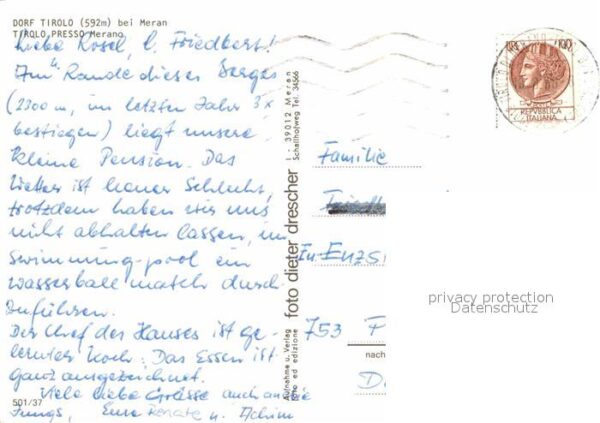 DORF TIROLO (592m) bei Meran
TIROLO PRESSO Merano
Liebe Rosel, l. Friedbert!
Am Rande dieses Berges
(2300 m, im letzten Jahr 3x
bestiegen) liegt unsere
kleine Pension. Das
Wetter ist heuer schlecht,
trotzdem haben wir uns
nicht abhalten lassen, im
Swimming-pool ein
Wasserball match durch-
zuführen.
Der Chef des Hauses ist ge-
lernter Koch. Das Essen ist
ganz ausgezeichnet.
Viele liebe Grüsse auch an die
Jungs, Eure Renate u. Achim
501/37
foto dieter drescher
I - 39012 Meran
Schallhofweg Tel. 34566
Aufnahme u. Verlag
foto ed edizione
LIRE 100
REPVBBLICA
ITALIANA
Familie
In Enzs
753 P
nach
D
privacy protection
Datenschutz